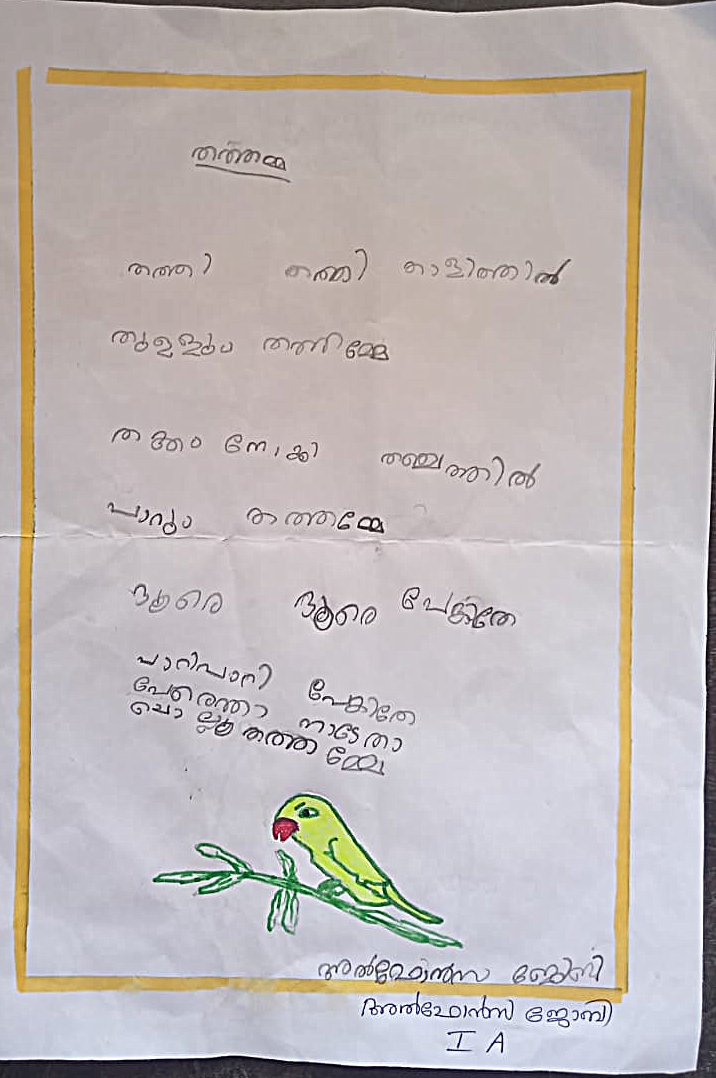 തത്തമ്മ
തത്തി തത്തി താളത്തിൽ
തുള്ളും തത്തമ്മേ
തക്കം നോക്കി തഞ്ചത്തിൽ
പാറും തത്തമ്മേ
ദൂരെ ദൂരെ പോകരുതേ
പാറിപാറി പോകരുതേ
പേരെന്താ നാടേതാ
ചൊല്ലൂ തത്തമ്മേ
അൽഫോൻസ ജോബി
അൽഫോൻസ ജോബി
I A